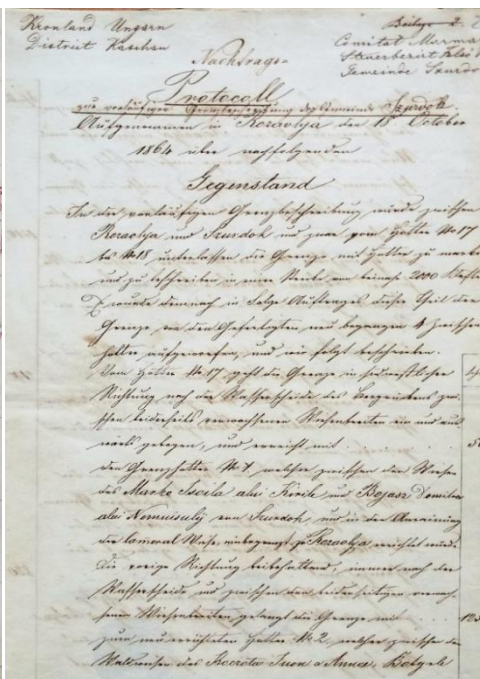 Kronland Ungarn
District Kaschau
Beilage 2
Comitat Marma
Steuerbezirk
Gemeinde Szurdo
Nachtrags=
Protocoll
zur vorläufigen Grenzbeschreibung der Gemeinde Szurdok
Aufgenommen in Rozavlya den 18 October
1864 über nachfolgenden
Gegenstand
In der vorläufigen Grenzbeschreibung wurde zwischen
Rozavlya und Szurdok und zwar vom Hotter No 17
bis No 18 unterlassen die Grenze mit Hotter zu
und zu beschreiben in einer Strecke von beinahe 2000 Klafter
Es wurde demnach in Folge Auftrages dieser Theil der
Grenze von den Gefertigten neu begangen, 4 zwischen
hotter aufgeworfen, und wie folgt beschrieben.
Vom Hotter No 17 geht die Grenze in
Richtung nach der Wasserscheide des Bergrückens zwi
schen beiderseits verwachsenen Wiesenbreiten ein und aus
wärts gebogen, und erreicht mit
den Grenzhotter No 1, welcher zwischen der Wiese
des Marko alui Kirila und Bojasz Domitru
alui von Szurdok, und in der
der Wiese zu Rozavlya errichtet wurde
Die vorige Richtung beibehaltend, immer nach der
Wasserscheide und zwischen den beiderseitigen verwach
senen Wiesenbreiten gelangt die Grenze mit
zum neu errichteten Hotter No 2, welcher zwischen den
Waldwiesen des Ivon a Annei,